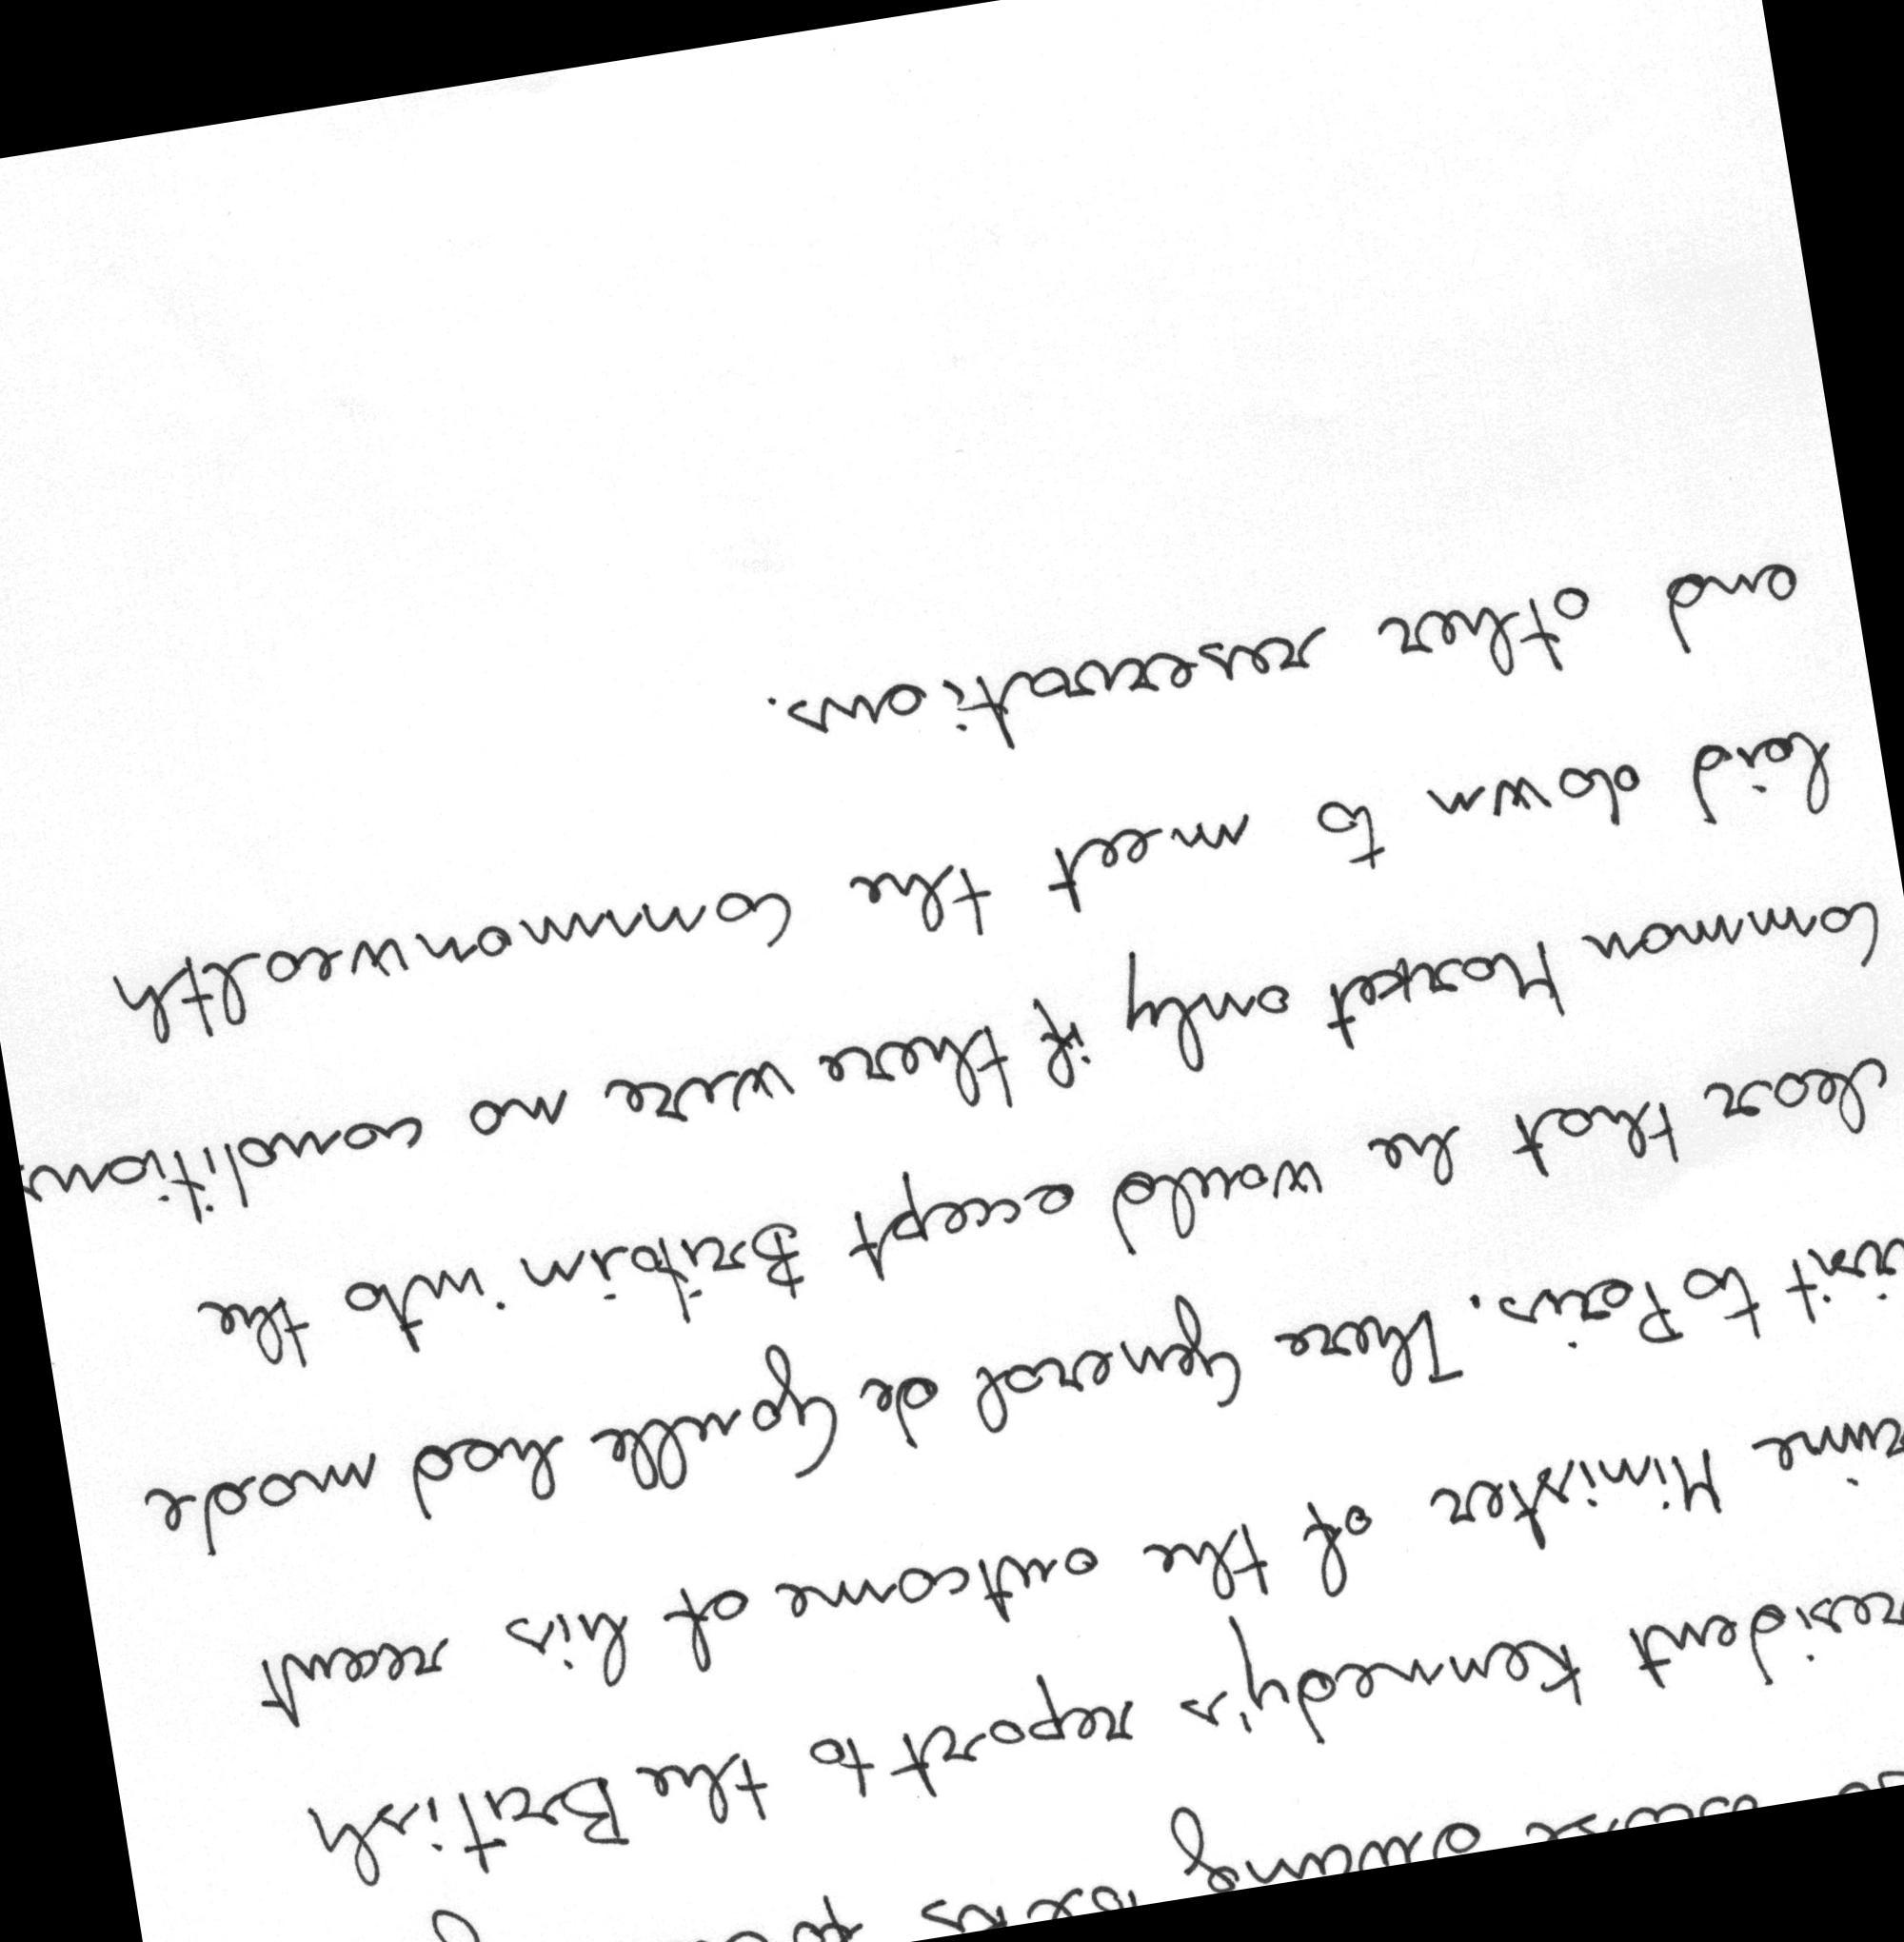 resident Kennedy's report to the British
rime Minister of the outcome of his recent
visit to Paris. There General de Gaulle had made
clear that he would accept Britain into the
Common Market only if there were no conditions
laid down to meet the Commonwealth
and other reservations.